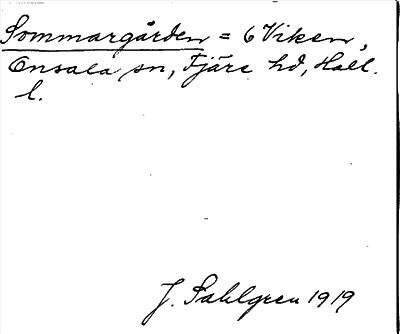 Sommargården = 6 Viken,
Onsala sn, Fjäre hd, Hall.
l.
J. Sahlgren 1919